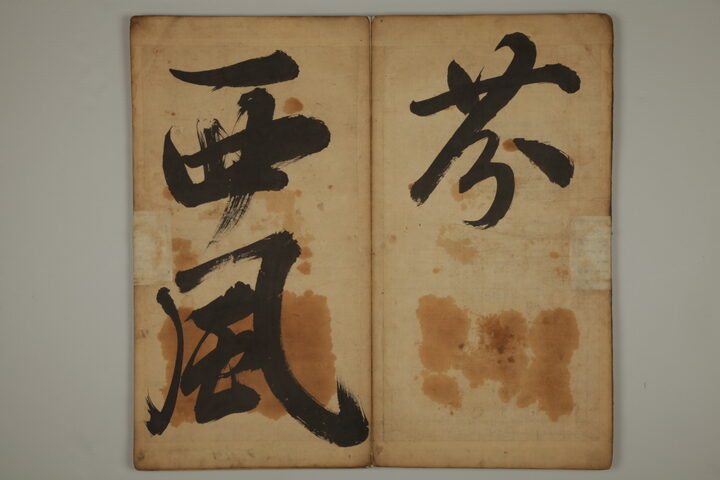 芬
西風